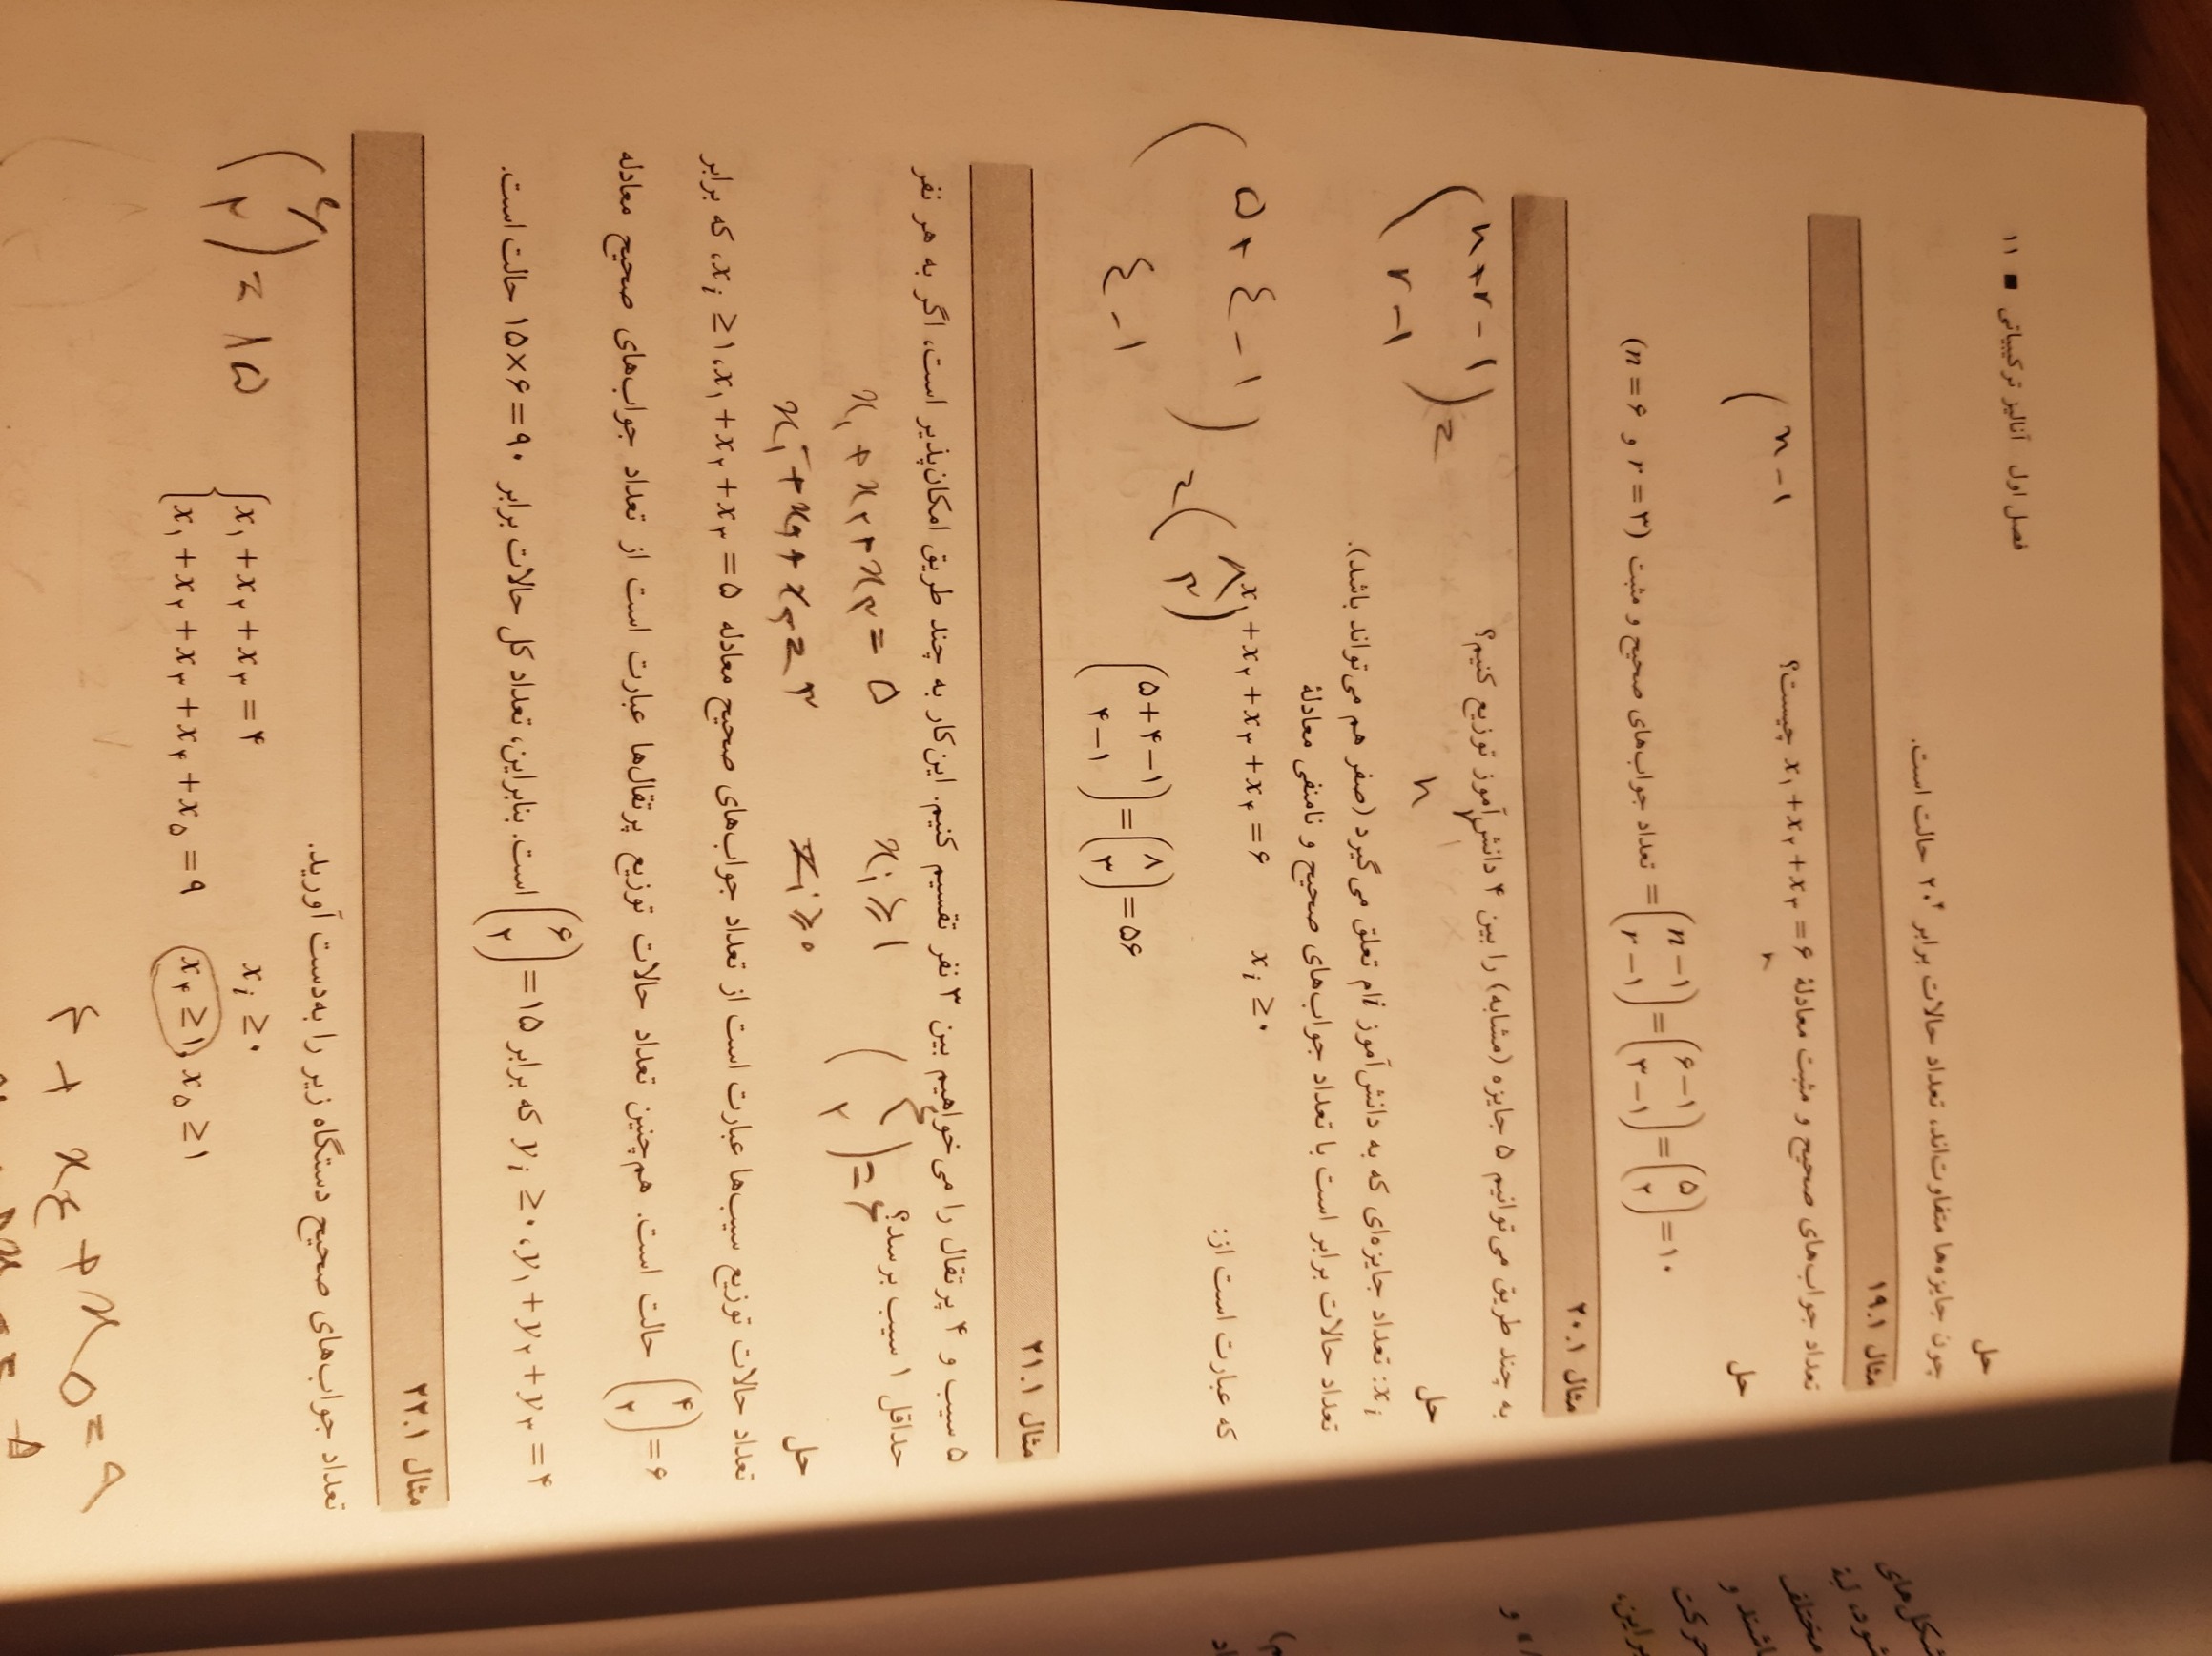 فصل اول آنالیز ترکیبیاتی ■ ۱۱
حل
چون جایزه‌ها متفاوت‌اند، تعداد حالات برابر ۲۰⁴ حالت است.
مثال ۱۹.۱
تعداد جواب‌های صحیح و مثبت معادلهٔ x₁ + x₂ + x₃ = ۶ چیست؟
n
(n - ۱
حل
(n = ۶ و r = ۳) تعداد جواب‌های صحیح و مثبت = (n-۱ / r-۱) = (۶-۱ / ۳-۱) = (۵ / ۲) = ۱۰
مثال ۲۰.۱
به چند طریق می‌توانیم ۵ جایزه (مشابه) را بین ۴ دانش‌آموز توزیع کنیم؟
(n+r-۱ / r-۱) =
n
r
حل
xᵢ: تعداد جایزه‌ای که به دانش‌آموز iام تعلق می‌گیرد (صفر هم می‌تواند باشد).
تعداد حالات برابر است با تعداد جواب‌های صحیح و نامنفی معادلهٔ
x₁ + x₂ + x₃ + x₄ = ۶ xᵢ ≥ ۰
(۵+۴-۱ / ۴-۱) = (۸ / ۳)
که عبارت است از:
(۵+۴-۱ / ۴-۱) = (۸ / ۳) = ۵۶
مثال ۲۱.۱
۵ سیب و ۴ پرتقال را می‌خواهیم بین ۳ نفر تقسیم کنیم. این کار به چند طریق امکان‌پذیر است، اگر به هر نفر
حداقل ۱ سیب برسد؟
x₁ + x₂ + x₃ = ۵ xᵢ ≥ ۱ (۴ / ۲) = ۶
x₁ + x₂ + x₃ = ۴ xᵢ ≥ ۰
حل
تعداد حالات توزیع سیب‌ها عبارت است از تعداد جواب‌های صحیح معادله x₁ + x₂ + x₃ = ۵ ،xᵢ ≥ ۱، که برابر
(۴ / ۲) = ۶ حالت است. هم‌چنین تعداد حالات توزیع پرتقال‌ها عبارت است از تعداد جواب‌های صحیح معادله
y₁ + y₂ + y₃ = ۴ ،yᵢ ≥ ۰ که برابر (۶ / ۲) = ۱۵ است. بنابراین، تعداد کل حالات برابر ۱۵×۶=۹۰ حالت است.
مثال ۲۲.۱
تعداد جواب‌های صحیح دستگاه زیر را به‌دست آورید.
(۶ / ۲) = ۱۵
x₁ + x₂ + x₃ = ۴ xᵢ ≥ ۰
x₁ + x₂ + x₃ + x₄ + x₅ = ۹ x₄ ≥ ۱, x₅ ≥ ۱
۴ + x₄ + x₅ = ۹
شکل‌های
شود، لذا
مختلف
باشند و
حرکت
براین،